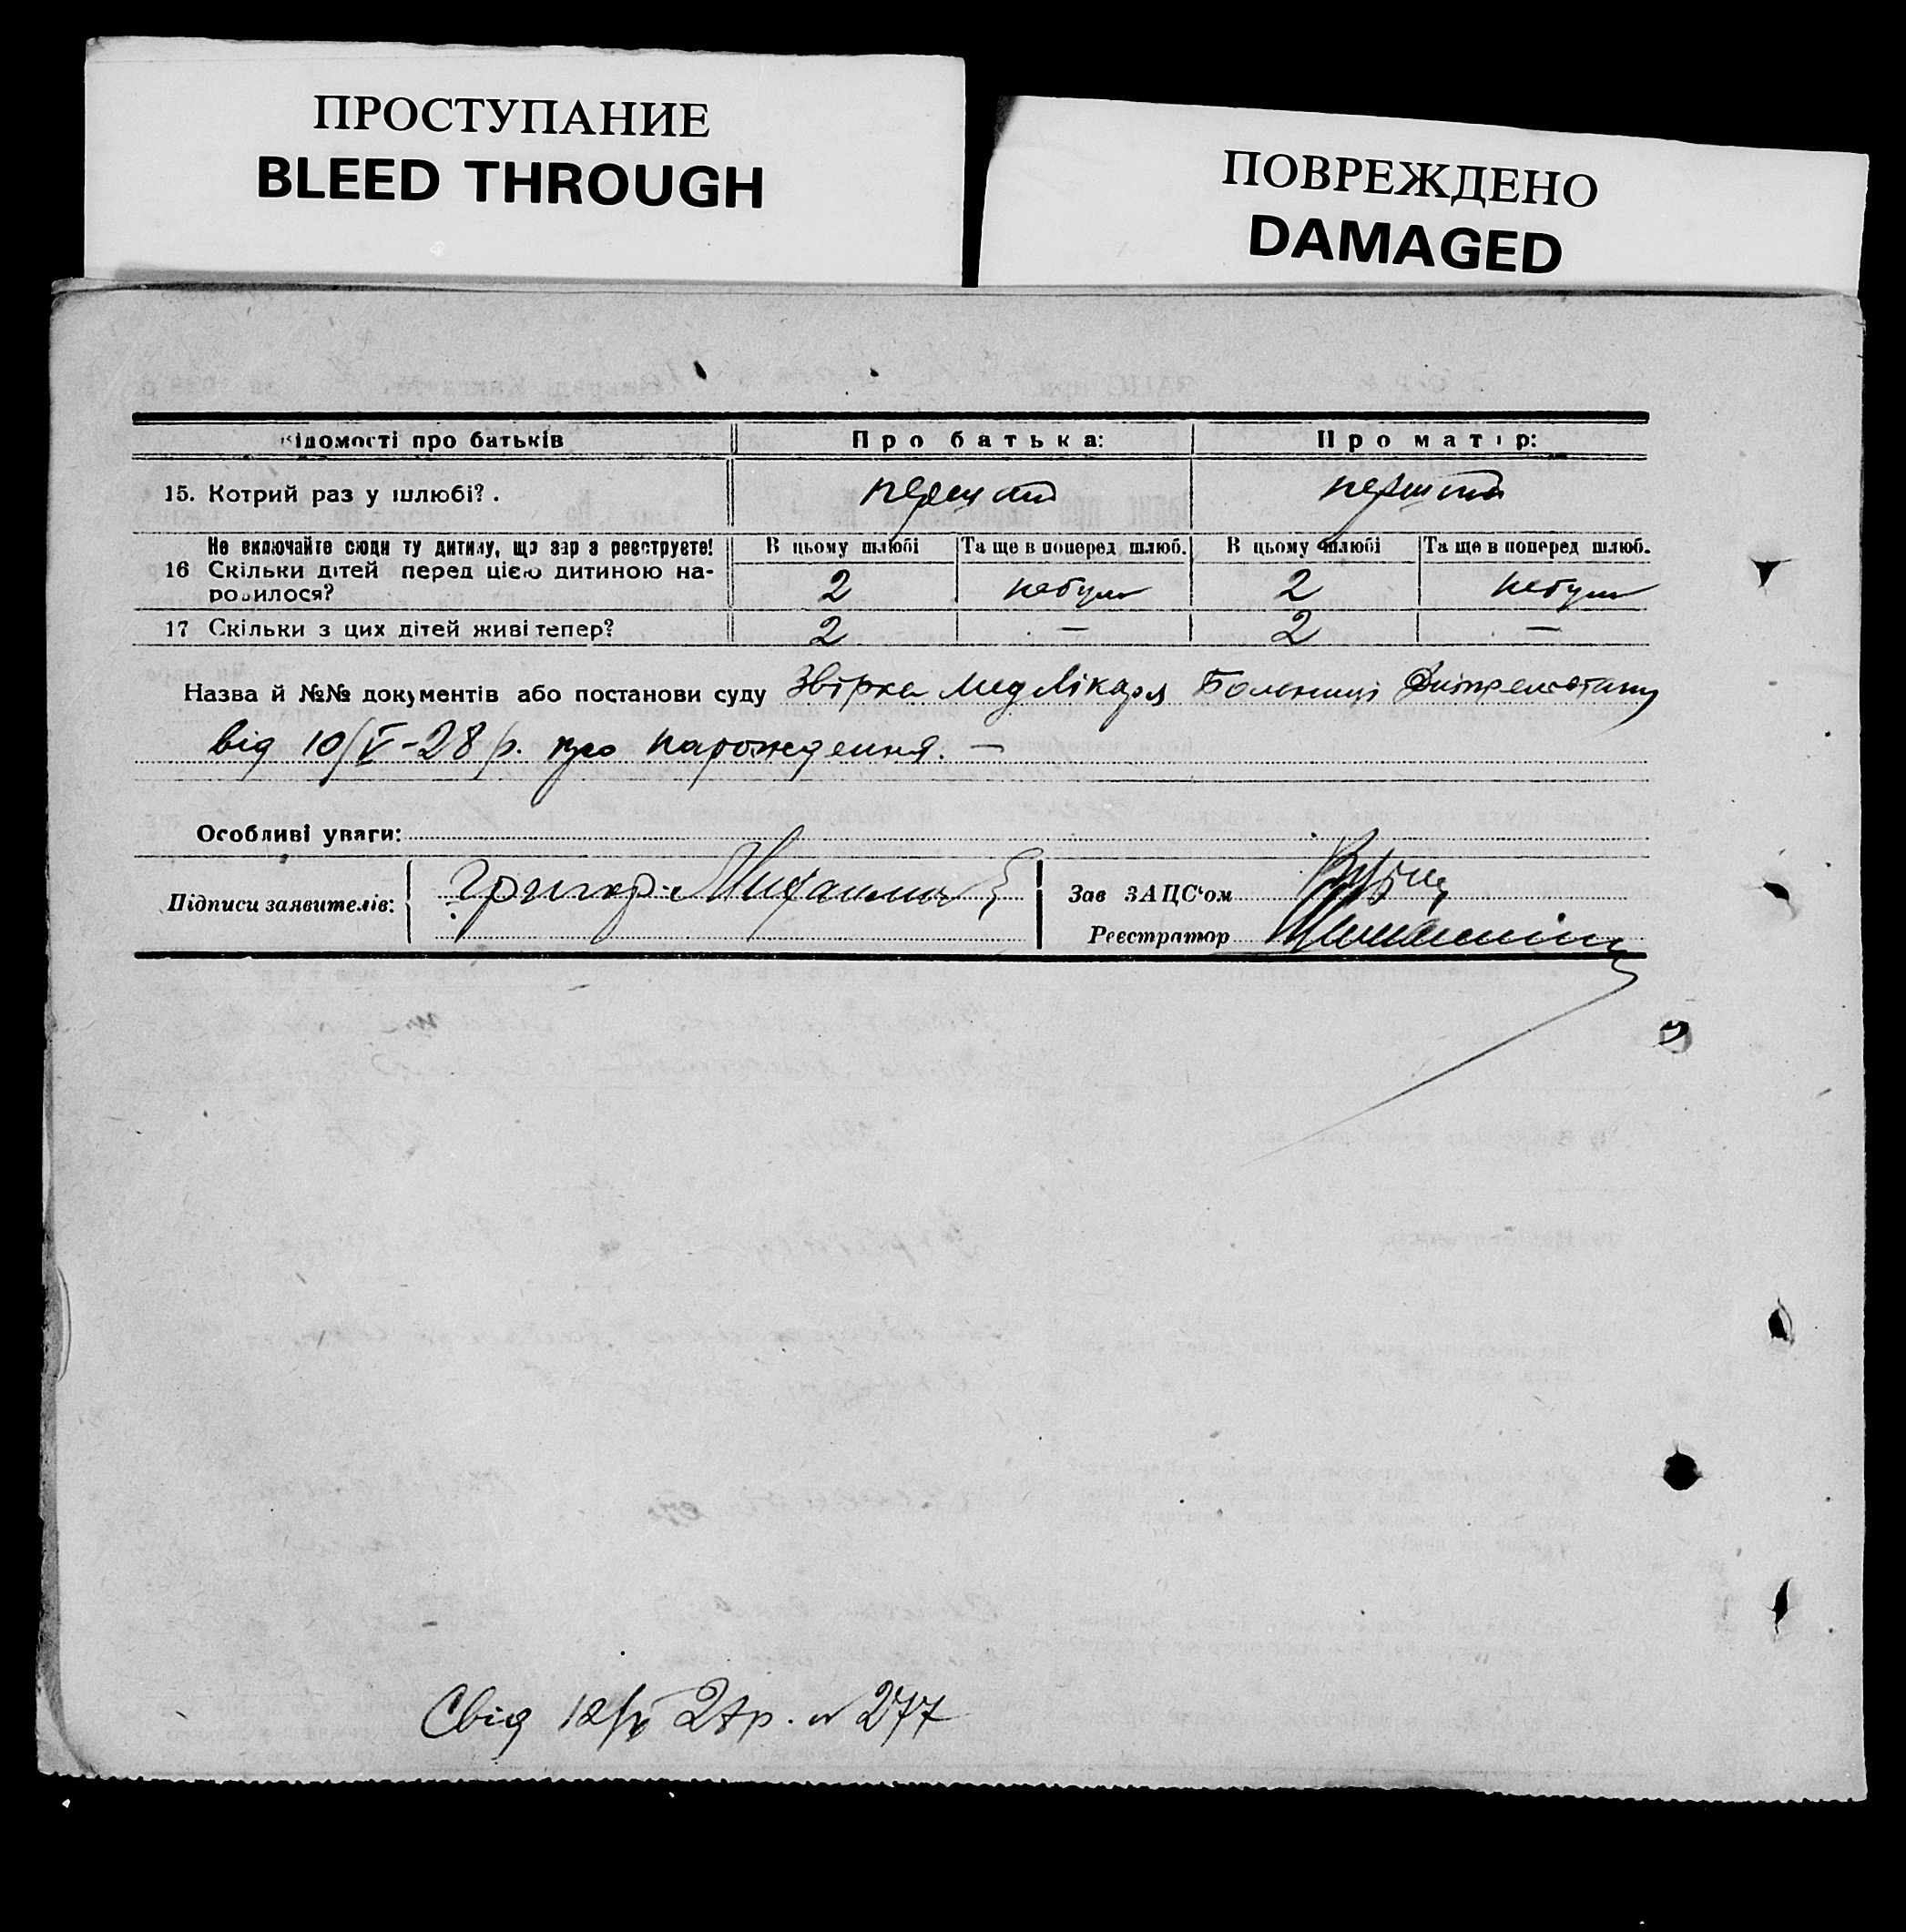 ПРОСТУПАНИЕ
BLEED THROUGH
ПОВРЕЖДЕНО
DAMAGED
відомості про батьків Про батька: Про матір:
15. Котрий раз у шлюбі?. перший перший
Не включайте сюди ту дитину, що зараз реєструєте! В цьому шлюбі Та ще в поперед. шлюб. В цьому шлюбі Та ще в поперед шлюб.
16 Скільки дітей перед цією дитиною на-
родилося? 2 небули 2 небули
17 Скільки з цих дітей живі тепер? 2 — 2 —
Назва й №№ документів або постанови суду Лікаря Больниці
від 10/V-28 р. про нарождення. —
Особливі уваги:
Підписи заявителів: Григорі Зав ЗАЦС‘ом
Реєстратор
Свід 277